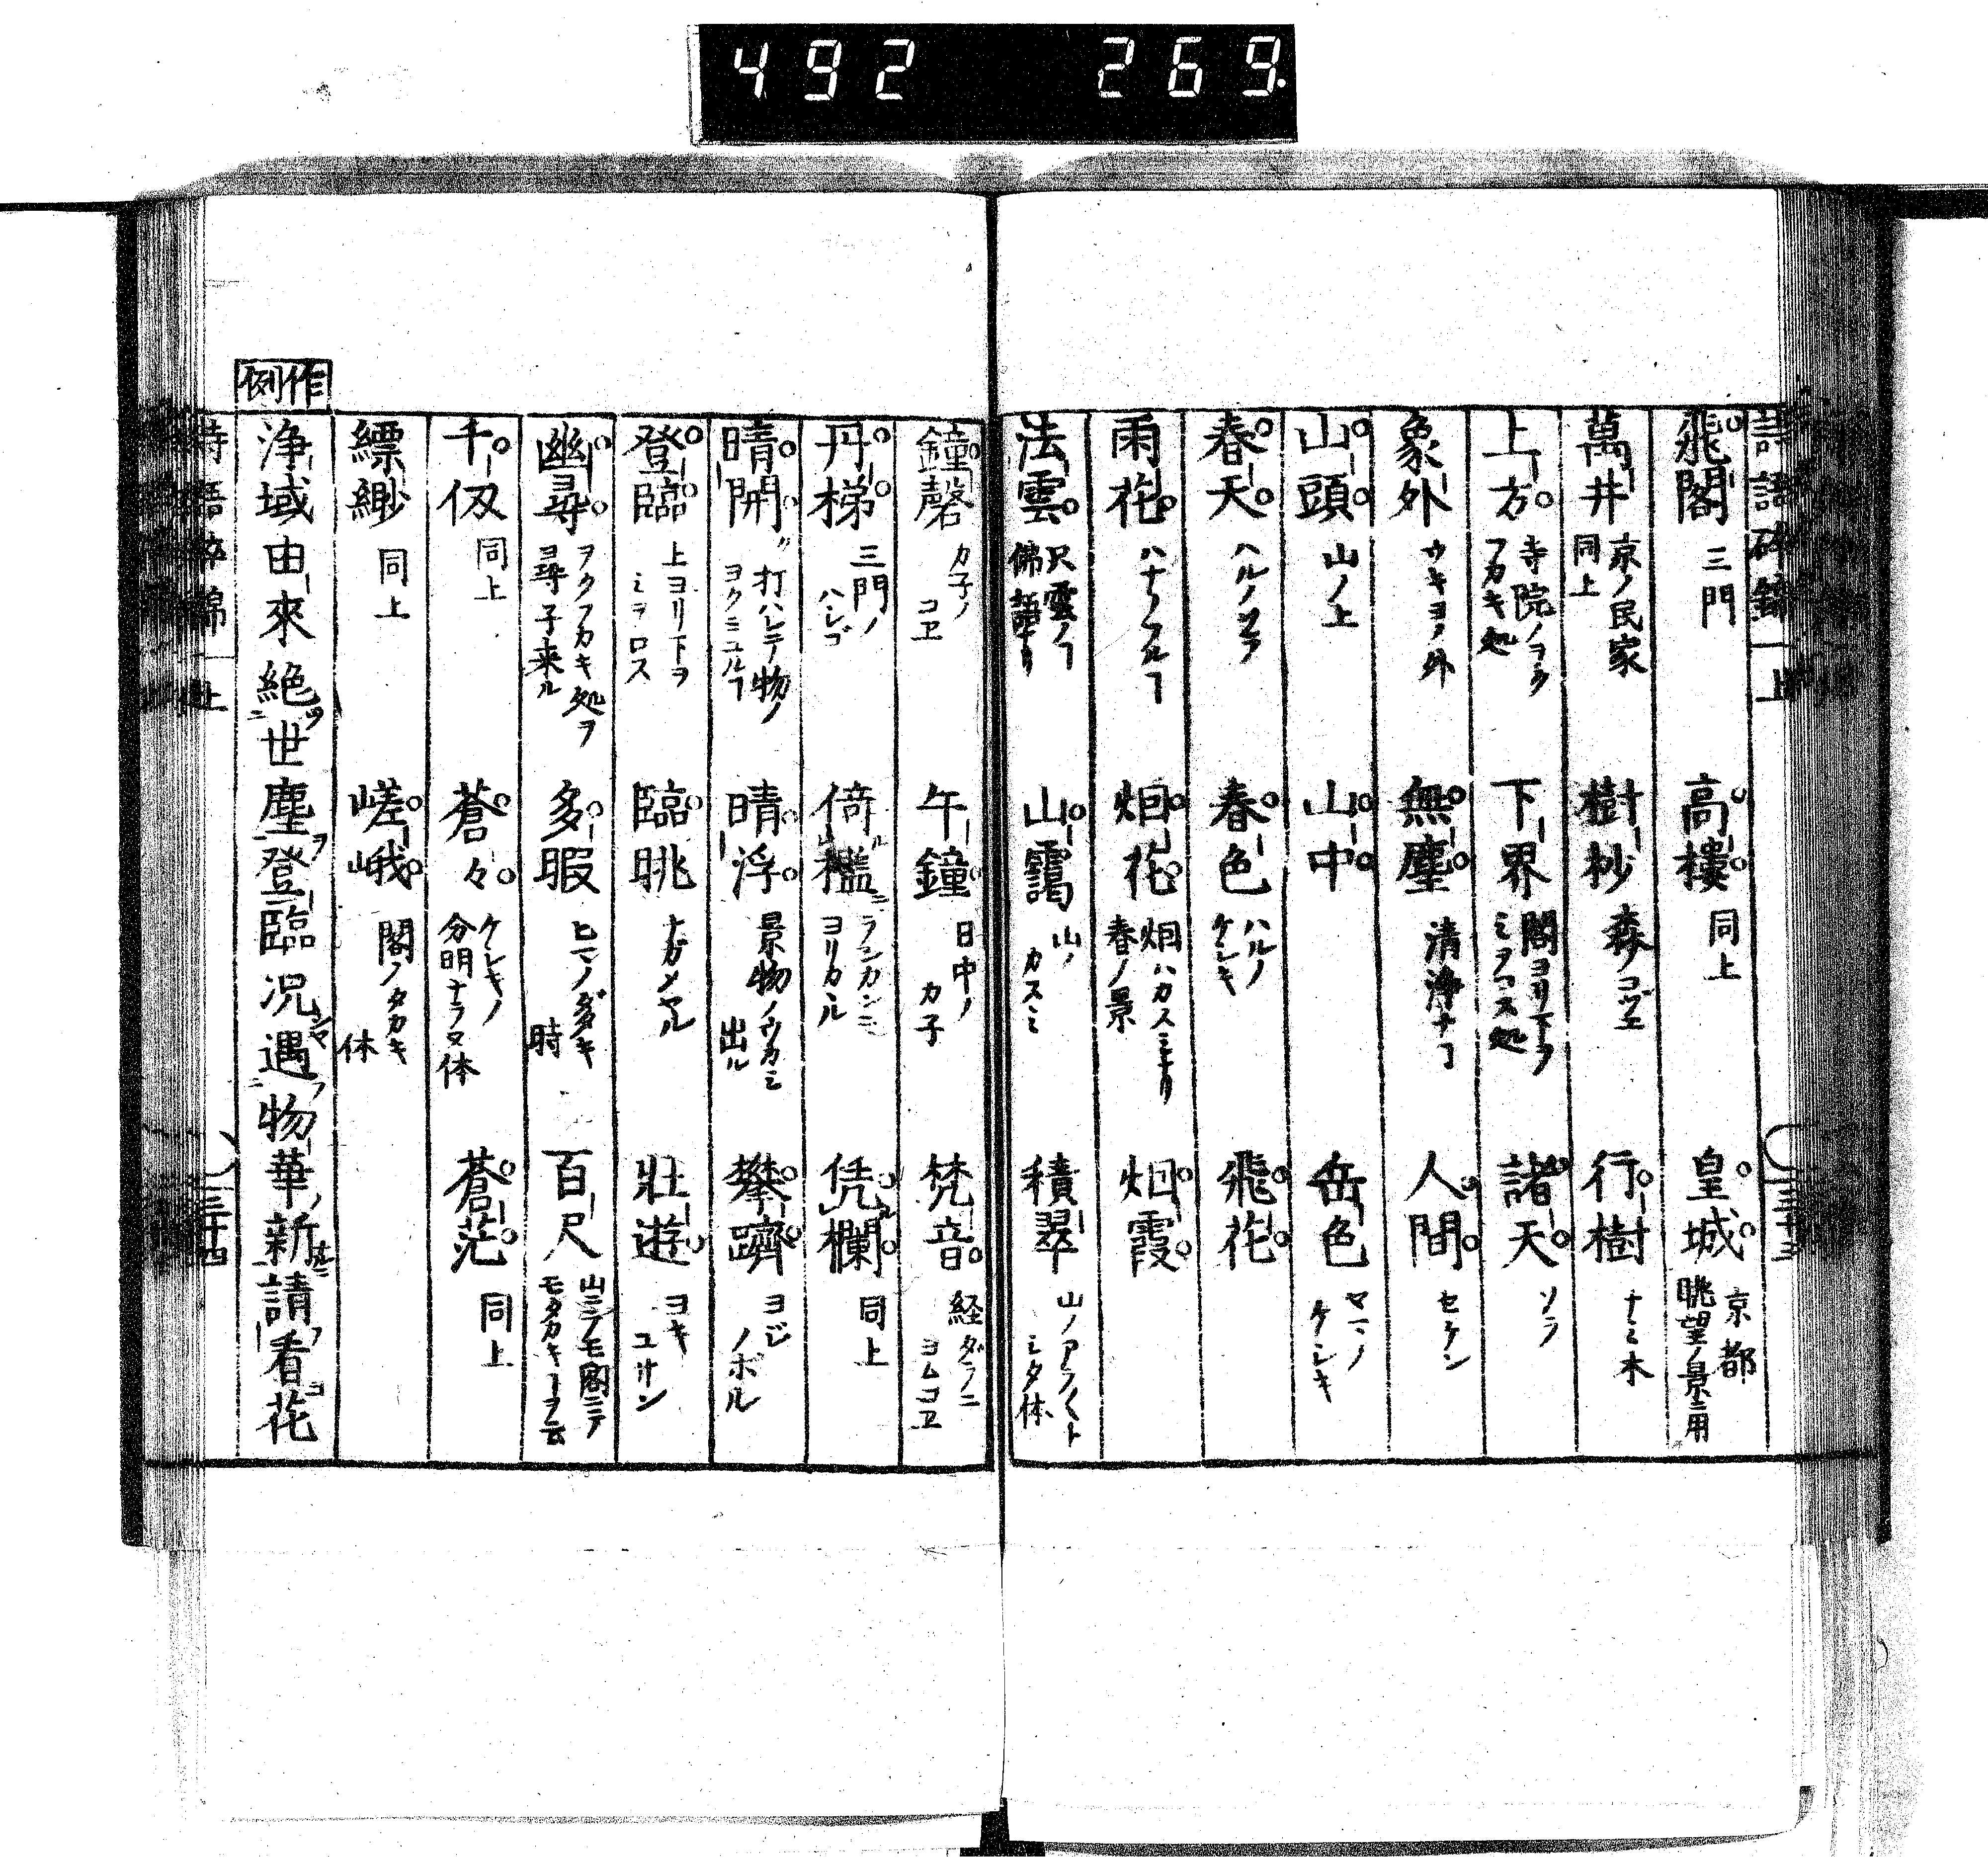 492 269
詩語砕錦 上 三十三
飛閣 三門 高樓 同上 皇城 京都眺望ノ景ニ用
萬井 京ノ民家同上 樹杪 森ノコヅエ 行樹 ナミ木
上方 寺院ノヲクフカキ処 下界 閣ヨリ下ヲミヲロス処 諸天 ソラ
象外 ウキヨノ外 無塵 清浄ナヿ 人間 セケン
山頭 山ノ上 山中 岳色 ヤマノケシキ
春天 ハルノソラ 春色 ハルノケシキ 飛花
雨花 ハナノフルヿ 烟花 烟ハカスミナリ春ノ景 烟霞
法雲 只雲ノヿ佛語ナリ 山靄 山ノカスミ 積翠 山ノアヲ〱トシタ体
鐘磬 カ子ノコヱ 午鐘 日中ノカ子 梵音 経ダラニヨムコヱ
丹梯 三門ノハシゴ 倚檻 ランカンニヨリカヽル 凭欄 同上
晴開 打ハレテ物ノヨクミユルヿ 晴浮 景物ノウカミ出ル 攀躋 ヨジノボル
登臨 上ヨリ下ヲミヲロス 臨眺 ナガメヤル 壯遊 ヨキユサン
幽尋 ヲクフカキ処ヲヨ尋子来ル 多暇 ヒマノヲヽキ時 百尺 山ニテモ閣ニテモタカキヿヲ云
千仭 同上 蒼々 ケシキノ分明ナラヌ体 蒼茫 同上
縹緲 同上 嵯峨 閣ノタカキ体
作例
浄域由來絶世塵登臨况遇物華新請看花
詩語砕錦 上 三十四